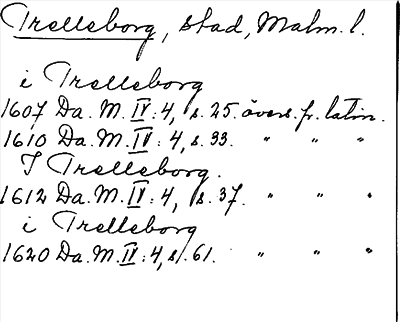 Trelleborg, stad, Malm. l.
i Trelleborg
1607 Da. M. IV: 4, s. 25. övers. fr. latin.
1610 Da. M. IV: 4, s. 33. " " "
I Trelleborg.
1612 Da. M. IV: 4, s. 37. " " "
i Trelleborg
1620 Da. M. IV: 4, s. 61. " " "